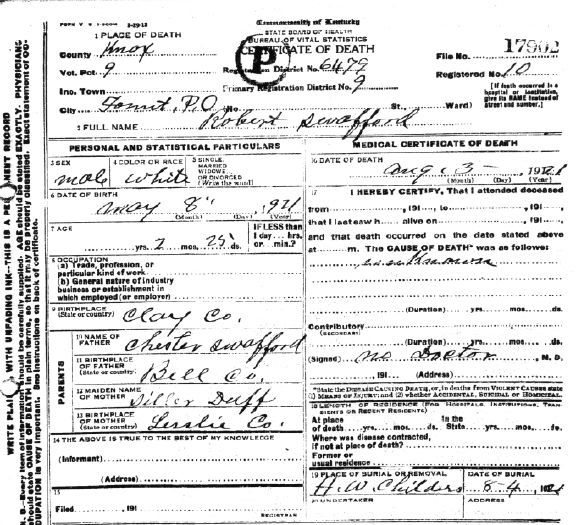 Commonwealth of Kentucky
STATE BOARD OF HEALTH
BUREAU OF VITAL STATISTICS
CERTIFICATE OF DEATH
1 PLACE OF DEATH
County Knox
Vot. Pct. 9
Inc. Town
City P.O. No. St. Ward)
Registration District No. 6479
Primary Registration District No. 9
File No. 17902
Registered No. 10
[If death occurred in a hospital or institution, give its NAME instead of street and number.]
P
2 FULL NAME Robert Swafford
PERSONAL AND STATISTICAL PARTICULARS
3 SEX male
4 COLOR OR RACE white
5 SINGLE, MARRIED WIDOWED OR DIVORCED (Write the word)
6 DATE OF BIRTH
May 8 1921
(Month) (Day) (Year)
7 AGE
yrs. 2 mos. 25 ds.
IF LESS than 1 day... hrs. or min.?
8 OCCUPATION
(a) Trade, profession, or particular kind of work
(b) General nature of industry business or establishment in which employed (or employer)
9 BIRTHPLACE (State or country) Clay Co.
PARENTS
10 NAME OF FATHER Chester Swafford
11 BIRTHPLACE OF FATHER (State or country) Bell Co.
12 MAIDEN NAME OF MOTHER Diller Duff
13 BIRTHPLACE OF MOTHER (State or country) Leslie Co.
14 THE ABOVE IS TRUE TO THE BEST OF MY KNOWLEDGE
(Informant)
(Address)
15
Filed 191
REGISTRAR
MEDICAL CERTIFICATE OF DEATH
16 DATE OF DEATH
Aug. 3 1921
(Month) (Day) (Year)
17 I HEREBY CERTIFY, That I attended deceased
from , 191 , to , 191 ,
that I last saw h alive on , 191 ,
and that death occurred on the date stated above
at m. The CAUSE OF DEATH* was as follows:
(Duration) yrs. mos. ds.
Contributory
(SECONDARY)
(Duration) yrs. mos. ds.
(Signed) no Doctor , M. D.
, 191 (Address)
*State the DISEASE CAUSING DEATH, or, in deaths from VIOLENT CAUSES state (1) MEANS OF INJURY; and (2) whether ACCIDENTAL, SUICIDAL or HOMICIDAL.
18 LENGTH OF RESIDENCE (FOR HOSPITALS, INSTITUTIONS, TRANSIENTS OR RECENT RESIDENTS)
At place of death yrs. mos. ds. In the State yrs. mos. ds.
Where was disease contracted, if not at place of death?
Former or usual residence
19 PLACE OF BURIAL OR REMOVAL
DATE OF BURIAL
8-4 1921
20 UNDERTAKER H.W. Childers
ADDRESS
WRITE PLAINLY WITH UNFADING INK—THIS IS A PERMANENT RECORD
N. B.—Every item of information should be carefully supplied. AGE should be stated EXACTLY. PHYSICIANS should state CAUSE OF DEATH in plain terms, so that it may be properly classified. Exact statement of OCCUPATION is very important. See instructions on back of certificate.